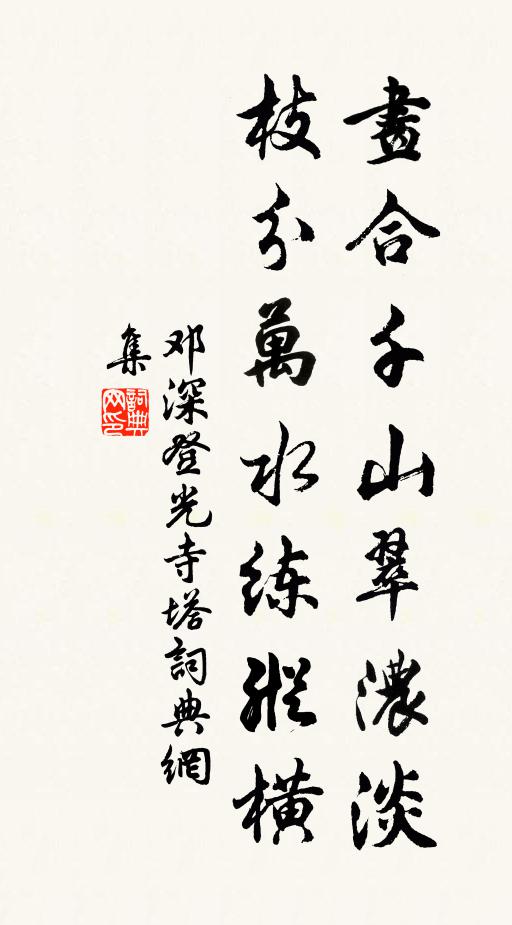 畫合千山翠濃淡
枝分萬水練縱橫
邓深登光寺塔詞典網
集
詞典網印